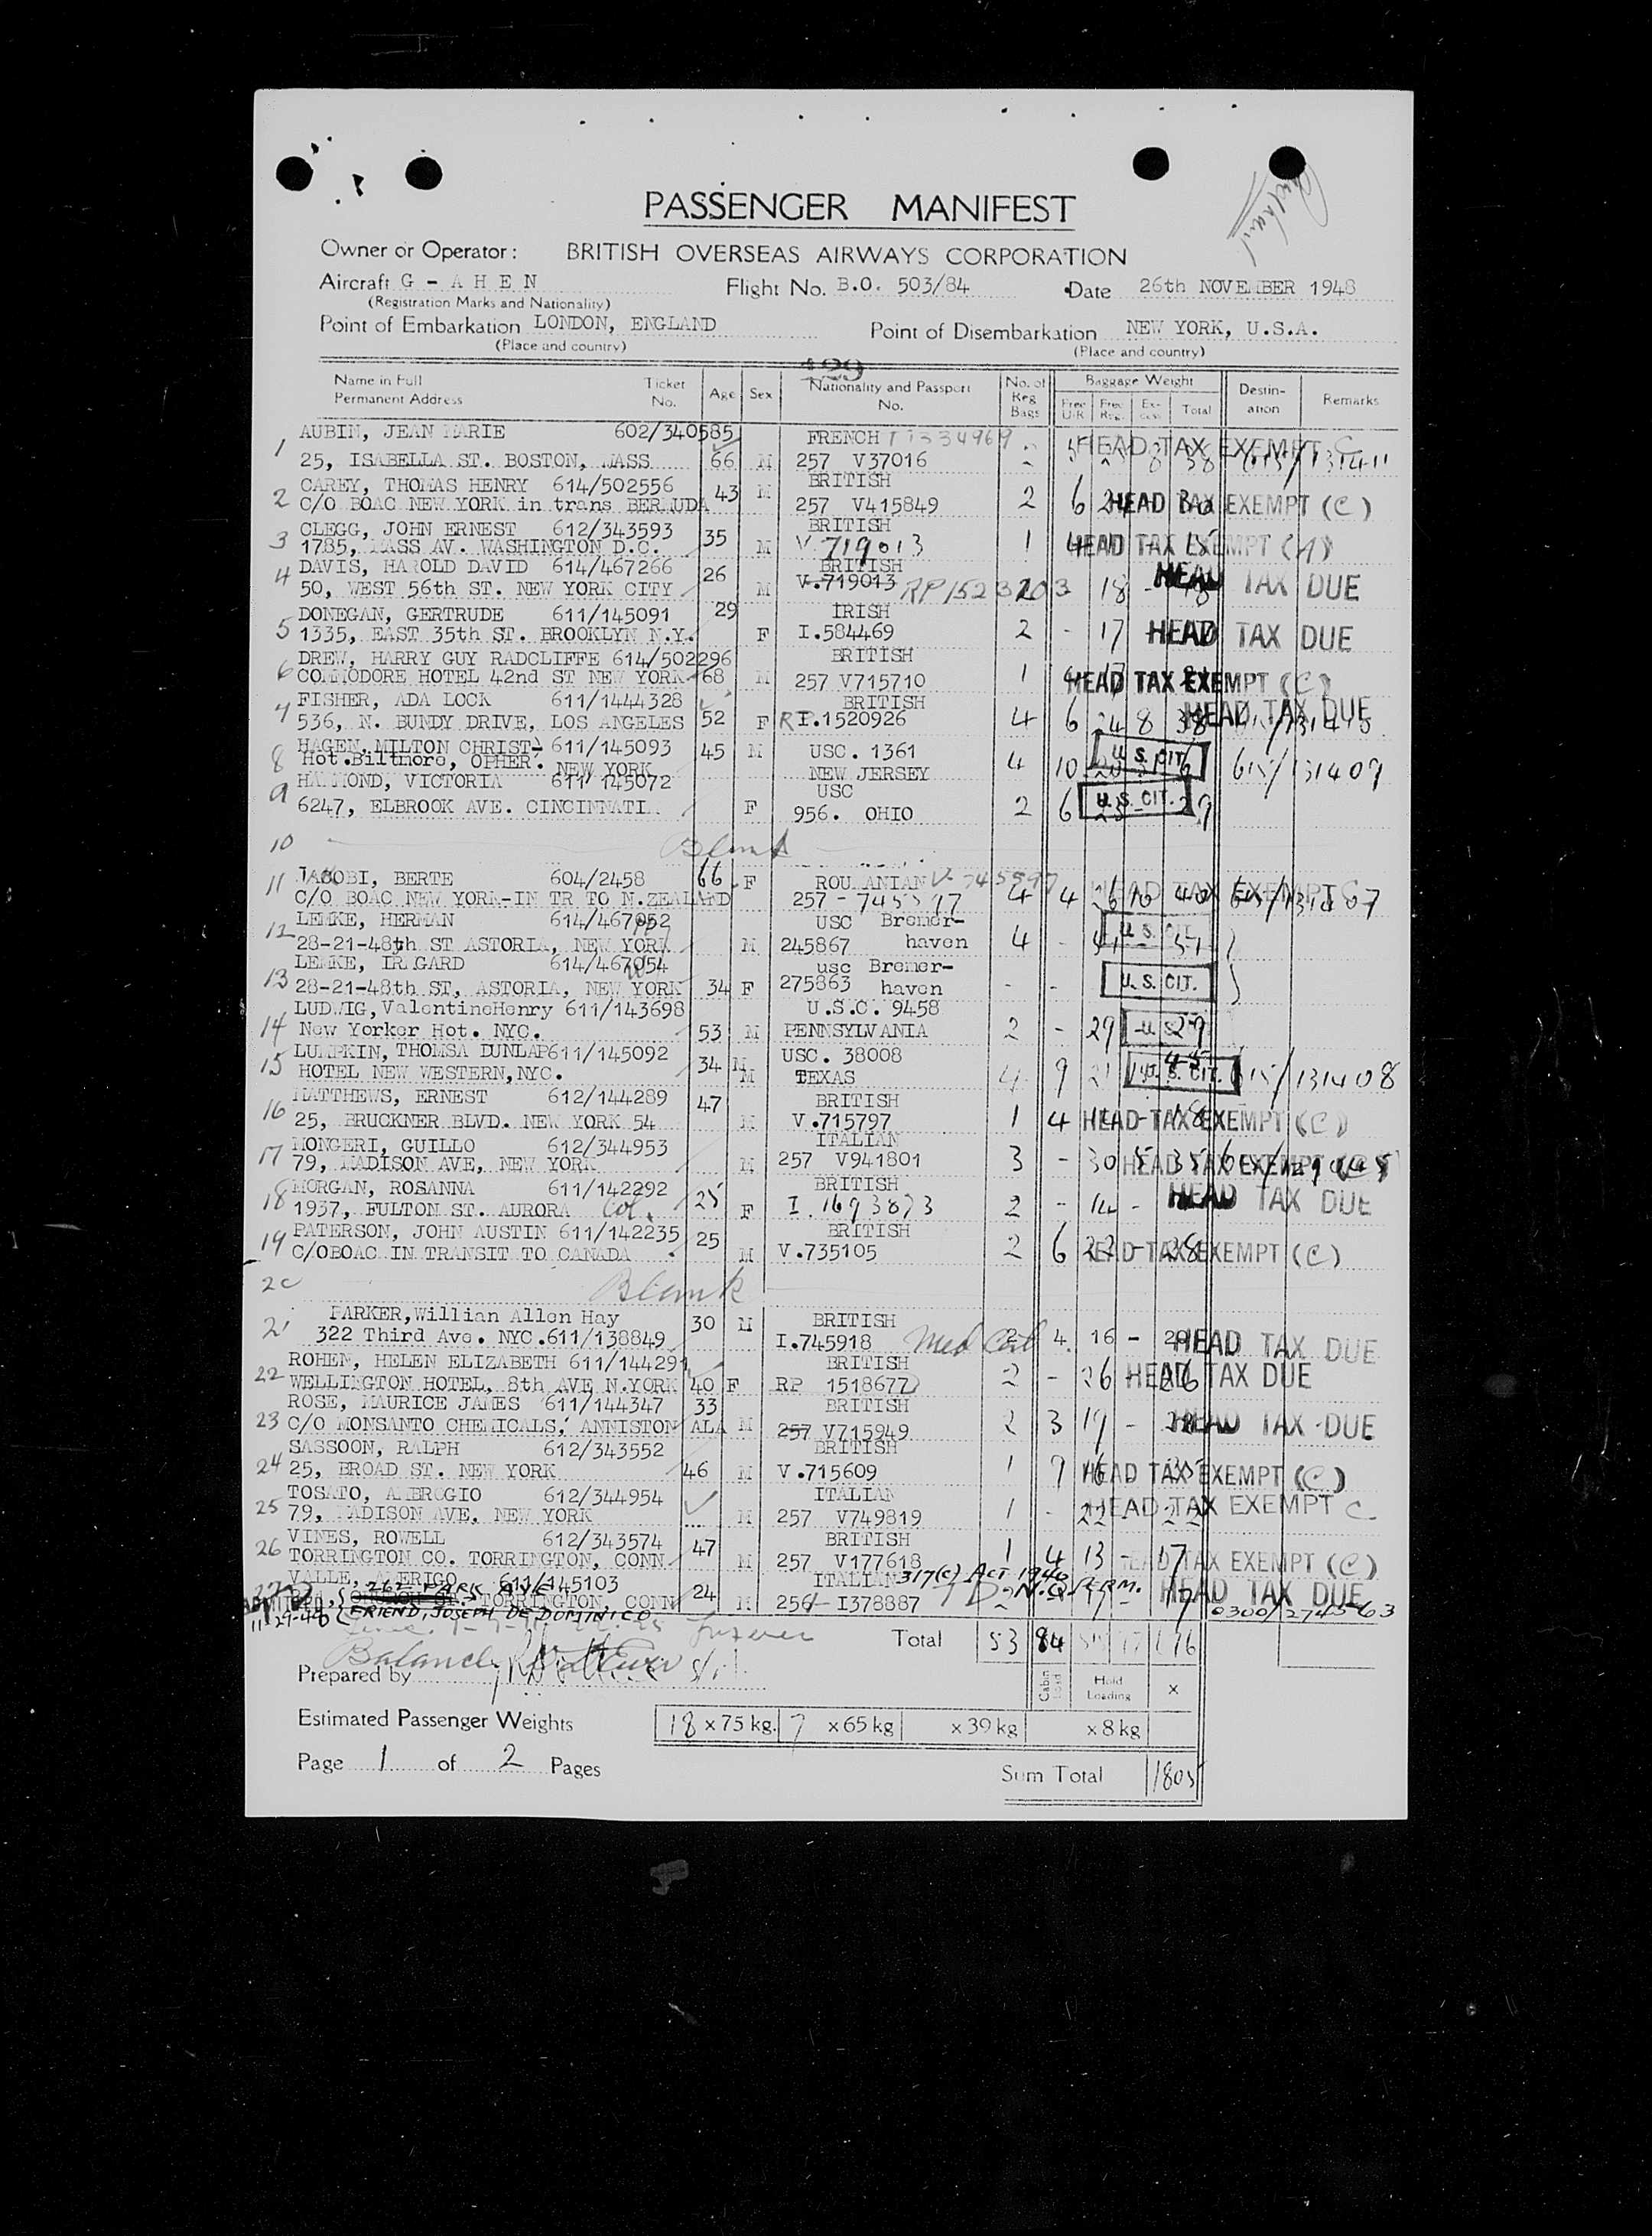 PASSENGER MANIFEST
Owner or Operator: BRITISH OVERSEAS AIRWAYS CORPORATION
Aircraft G - A H E N Flight No. B.O. 503/84 Date 26th NOVEMBER 1948
(Registration Marks and Nationality)
Point of Embarkation LONDON, ENGLAND Point of Disembarkation NEW YORK, U.S.A.
(Place and country) (Place and country)
Name in Full Ticket Age Sex Nationality and Passport No. of Baggage Weight Destin- Remarks
Permanent Address No. No. Reg Bags Free U/R Free Reg. Ex-cess Total ation
1 AUBIN, JEAN MARIE 602/340585 FRENCH HEAD TAX EXEMPT C
25, ISABELLA ST. BOSTON, MASS 66 M 257 V37016
2 CAREY, THOMAS HENRY 614/502556 43 M BRITISH
C/O BOAC NEW YORK in trans BERMUDA 257 V415849 2 6 HEAD TAX EXEMPT (C)
3 CLEGG, JOHN ERNEST 612/343593 35 BRITISH
1785, MASS AV. WASHINGTON D.C. M V 719013 1 4 HEAD TAX EXEMPT
4 DAVIS, HAROLD DAVID 614/467266 26 BRITISH HEAD TAX DUE
50, WEST 56th ST. NEW YORK CITY M V.719013 RP1523203 18 - 18
DONEGAN, GERTRUDE 611/145091 29 IRISH
5 1335, EAST 35th ST. BROOKLYN N.Y. F I.584469 2 - 17 HEAD TAX DUE
DREW, HARRY GUY RADCLIFFE 614/502296 BRITISH
6 COMMODORE HOTEL 42nd ST NEW YORK 68 M 257 V715710 1 4 17 HEAD TAX EXEMPT (C)
FISHER, ADA LOCK 611/1444328 BRITISH HEAD TAX DUE
536, N. BUNDY DRIVE, LOS ANGELES 52 F RP.1520926 4 6 24 8 38
HAGEN, MILTON CHRIST- 611/145093 45 M USC. 1361 4 10 U. S. CIT. 615/131409
8 Hot.Biltmore, OPHER. NEW YORK NEW JERSEY
9 HAMMOND, VICTORIA 611/145072 USC
6247, ELBROOK AVE. CINCINNATI. F 956. OHIO 2 6 23 - 29 U. S. CIT.
10 Blank
11 JACOBI, BERTE 604/2458 66 F ROUMANIAN HEAD TAX EXEMPT C
C/O BOAC NEW YORK-IN TR TO N.ZEALAND 257 - 745597 4 4 26 10 40
LEMKE, HERMAN 614/467052 USC Bremer-
12 28-21-48th ST ASTORIA, NEW YORK M 245867 haven 4 - U. S. CIT.
LEMKE, IRMGARD 614/467054 usc Bremer-
13 28-21-48th ST, ASTORIA, NEW YORK 34 F 275863 haven - - U. S. CIT.
LUDWIG, ValentineHenry 611/143698 U.S.C. 9458
14 New Yorker Hot. NYC. 53 M PENNSYLVANIA 2 - 29 - 29
15 LUMPKIN, THOMSA DUNLAP 611/145092 34 M USC. 38008
HOTEL NEW WESTERN, NYC. M TEXAS 4 9 21 U. S. CIT. 615/131408
MATTHEWS, ERNEST 612/144289 47 BRITISH
16 25, BRUCKNER BLVD. NEW YORK 54 M V.715797 1 4 HEAD TAX EXEMPT (C)
MONGERI, GUILLO 612/344953 ITALIAN
17 79, MADISON AVE, NEW YORK M 257 V941801 3 - 30 5 35 HEAD TAX EXEMPT
MORGAN, ROSANNA 611/142292 25 BRITISH
18 1957, FULTON ST. AURORA Col. F I.1693873 2 - 14 - HEAD TAX DUE
PATERSON, JOHN AUSTIN 611/142235 25 BRITISH
19 C/OBOAC IN TRANSIT TO CANADA M V.735105 2 6 22 - 28 HEAD TAX EXEMPT (C)
20 Blank
PARKER, Willian Allen Hay 30 M BRITISH
21 322 Third Ave. NYC. 611/138849 I.745918 Med Cert 2 4 16 - 20 HEAD TAX DUE
ROHEN, HELEN ELIZABETH 611/144291 BRITISH
22 WELLINGTON HOTEL, 8th AVE N.YORK 40 F RP 1518677 2 - 26 - 26 HEAD TAX DUE
ROSE, MAURICE JAMES 611/144347 33 BRITISH
23 C/O MONSANTO CHEMICALS, ANNISTON ALA M 257 V715949 2 3 19 - HEAD TAX DUE
SASSOON, RALPH 612/343552 BRITISH
24 25, BROAD ST. NEW YORK 46 M V.715609 1 9 16 HEAD TAX EXEMPT (C)
TOSATO, AMBROGIO 612/344954 ITALIAN
25 79, MADISON AVE, NEW YORK M 257 V749819 1 - 22 - 22 HEAD TAX EXEMPT C
VINES, ROWELL 612/343574 47 BRITISH
26 TORRINGTON CO. TORRINGTON, CONN M 257 V177618 1 4 13 - 17 HEAD TAX EXEMPT (C)
VALLE, AMERIGO 611/145103 ITALIAN 317(c) Act 1940
262 PARK AVE TORRINGTON, CONN 24 M 256 I378887 HEAD TAX DUE
11-29-48 FRIEND, JOSEPH DE DOMINICO 0300/
Total 53 84
Balance
Prepared by Cabin Load Hold Loading x
Estimated Passenger Weights 18 x 75 kg. 7 x 65 kg x 39 kg x 8 kg
Page 1 of 2 Pages
Sum Total 1805